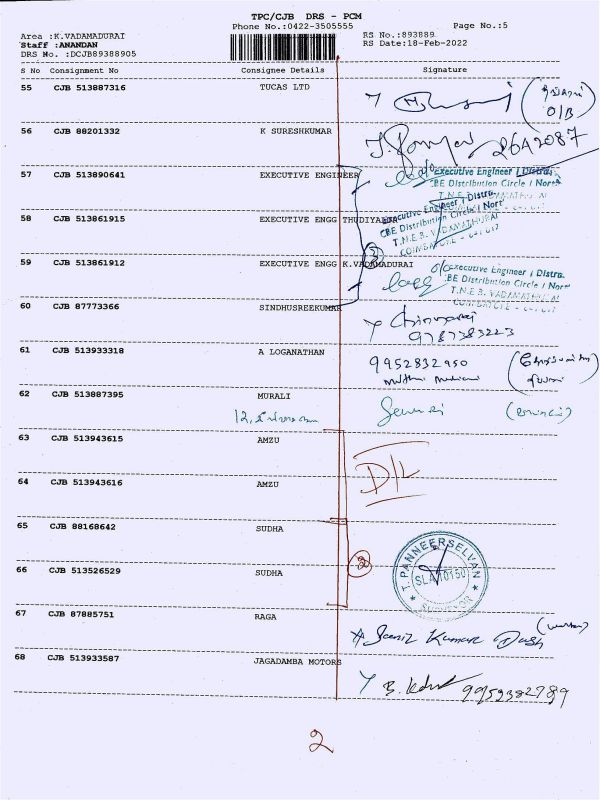 TPC/CJB DRS - PCM
Phone No.:0422-3505555
Page No.:5
Area :K.VADAMADURAI
RS No.:893889
Staff :ANANDAN
RS Date:18-Feb-2022
DRS No. :DCJB89388905
S No Consignment No Consignee Details Signature
55 CJB 513887316 TUCAS LTD
O/B
56 CJB 88201332 K SURESHKUMAR
2642087
57 CJB 513890641 EXECUTIVE ENGINEER
Executive Engineer / Distra.
CBE Distribution Circle / Nort
T.N.E.B. VADAMATHURAI
58 CJB 513861915 EXECUTIVE ENGG THUDIYA
Executive Engineer / Distr
CBE Distribution Circle / Nort
T.N.E.B. VADAMATHURAI
COIMBATORE - 641 017
3
59 CJB 513861912 EXECUTIVE ENGG K.VADAMADURAI
Executive Engineer / Distra.
BE Distribution Circle / Nort
T.N.E.B. VADAMATHURAI
COIMBATORE - 641 017
60 CJB 87773366 SINDHUSREEKUMAR
9787383223
61 CJB 513933318 A LOGANATHAN
9952832950
62 CJB 513887395 MURALI
63 CJB 513943615 AMZU
D/L
64 CJB 513943616 AMZU
65 CJB 88168642 SUDHA
2
66 CJB 513526529 SUDHA
T. PANNEERSELVAN
SLA 10150
SURVEYOR
67 CJB 87885751 RAGA
Kumar Dash
68 CJB 513933587 JAGADAMBA MOTORS
9959382789
2